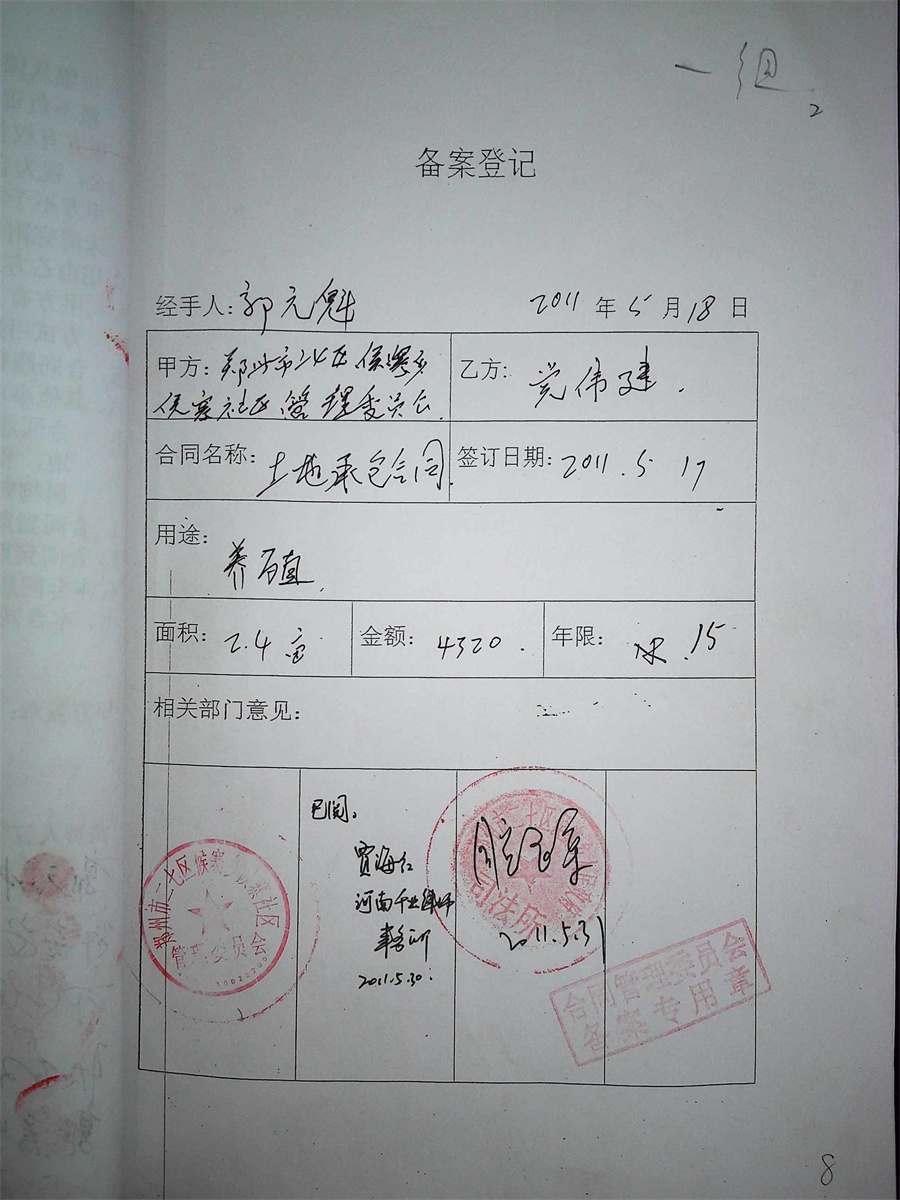 一组
2
备案登记
经手人:郭元魁 2011 年 5 月 18 日
甲方:郑州市二七区侯寨乡
侯寨社区管理委员会.
乙方:党伟建.
合同名称:土地承包合同.
签订日期:2011.5 17
用途:
养殖.
面积: 2.4亩
金额: 4320.
年限: 15
相关部门意见:
郑州市二七区侯寨乡侯寨社区
管理委员会
已阅。
贾海红
河南千业律师
事务所
2011.5.30.
二七区
司法所
2011.5.31
合同管理委员会
备案专用章
8